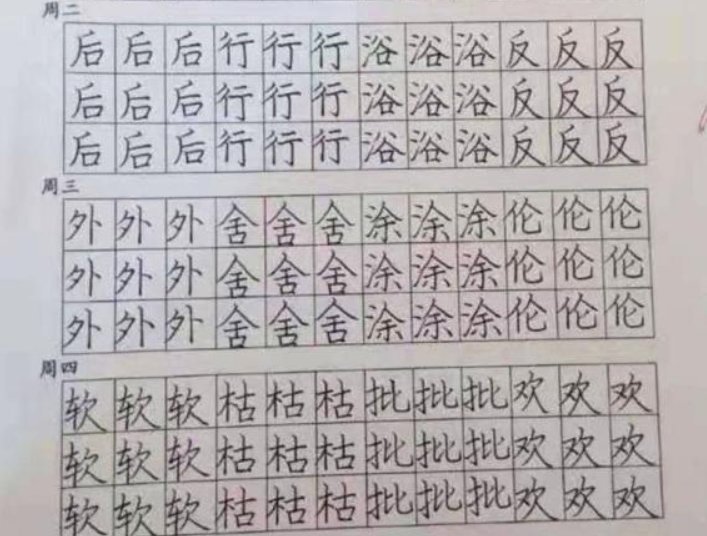 周二
后后后行行行浴浴浴反反反
后后后行行行浴浴浴反反反
后后后行行行浴浴浴反反反
周三
外外外舍舍舍涂涂涂伦伦伦
外外外舍舍舍涂涂涂伦伦伦
外外外舍舍舍涂涂涂伦伦伦
周四
软软软枯枯枯批批批欢欢欢
软软软枯枯枯批批批欢欢欢
软软软枯枯枯批批批欢欢欢